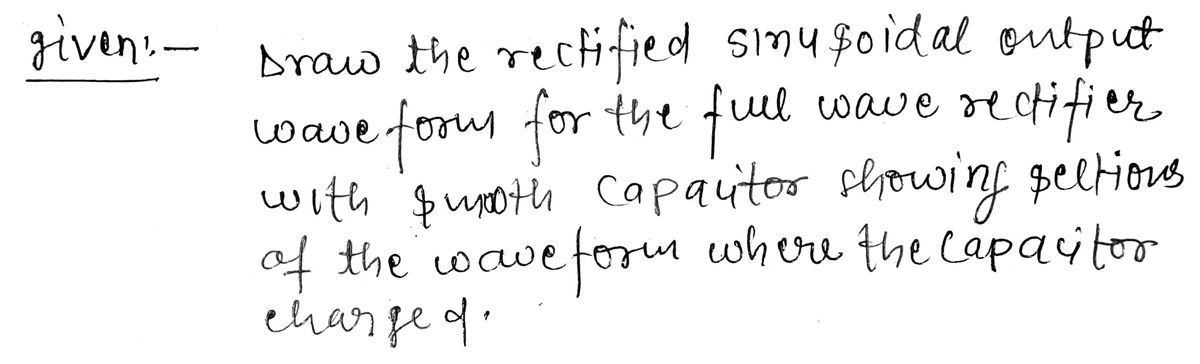 given:- Draw the rectified sinusoidal output
waveform for the full wave rectifier
with smooth capacitor showing sections
of the waveform where the capacitor
charged.